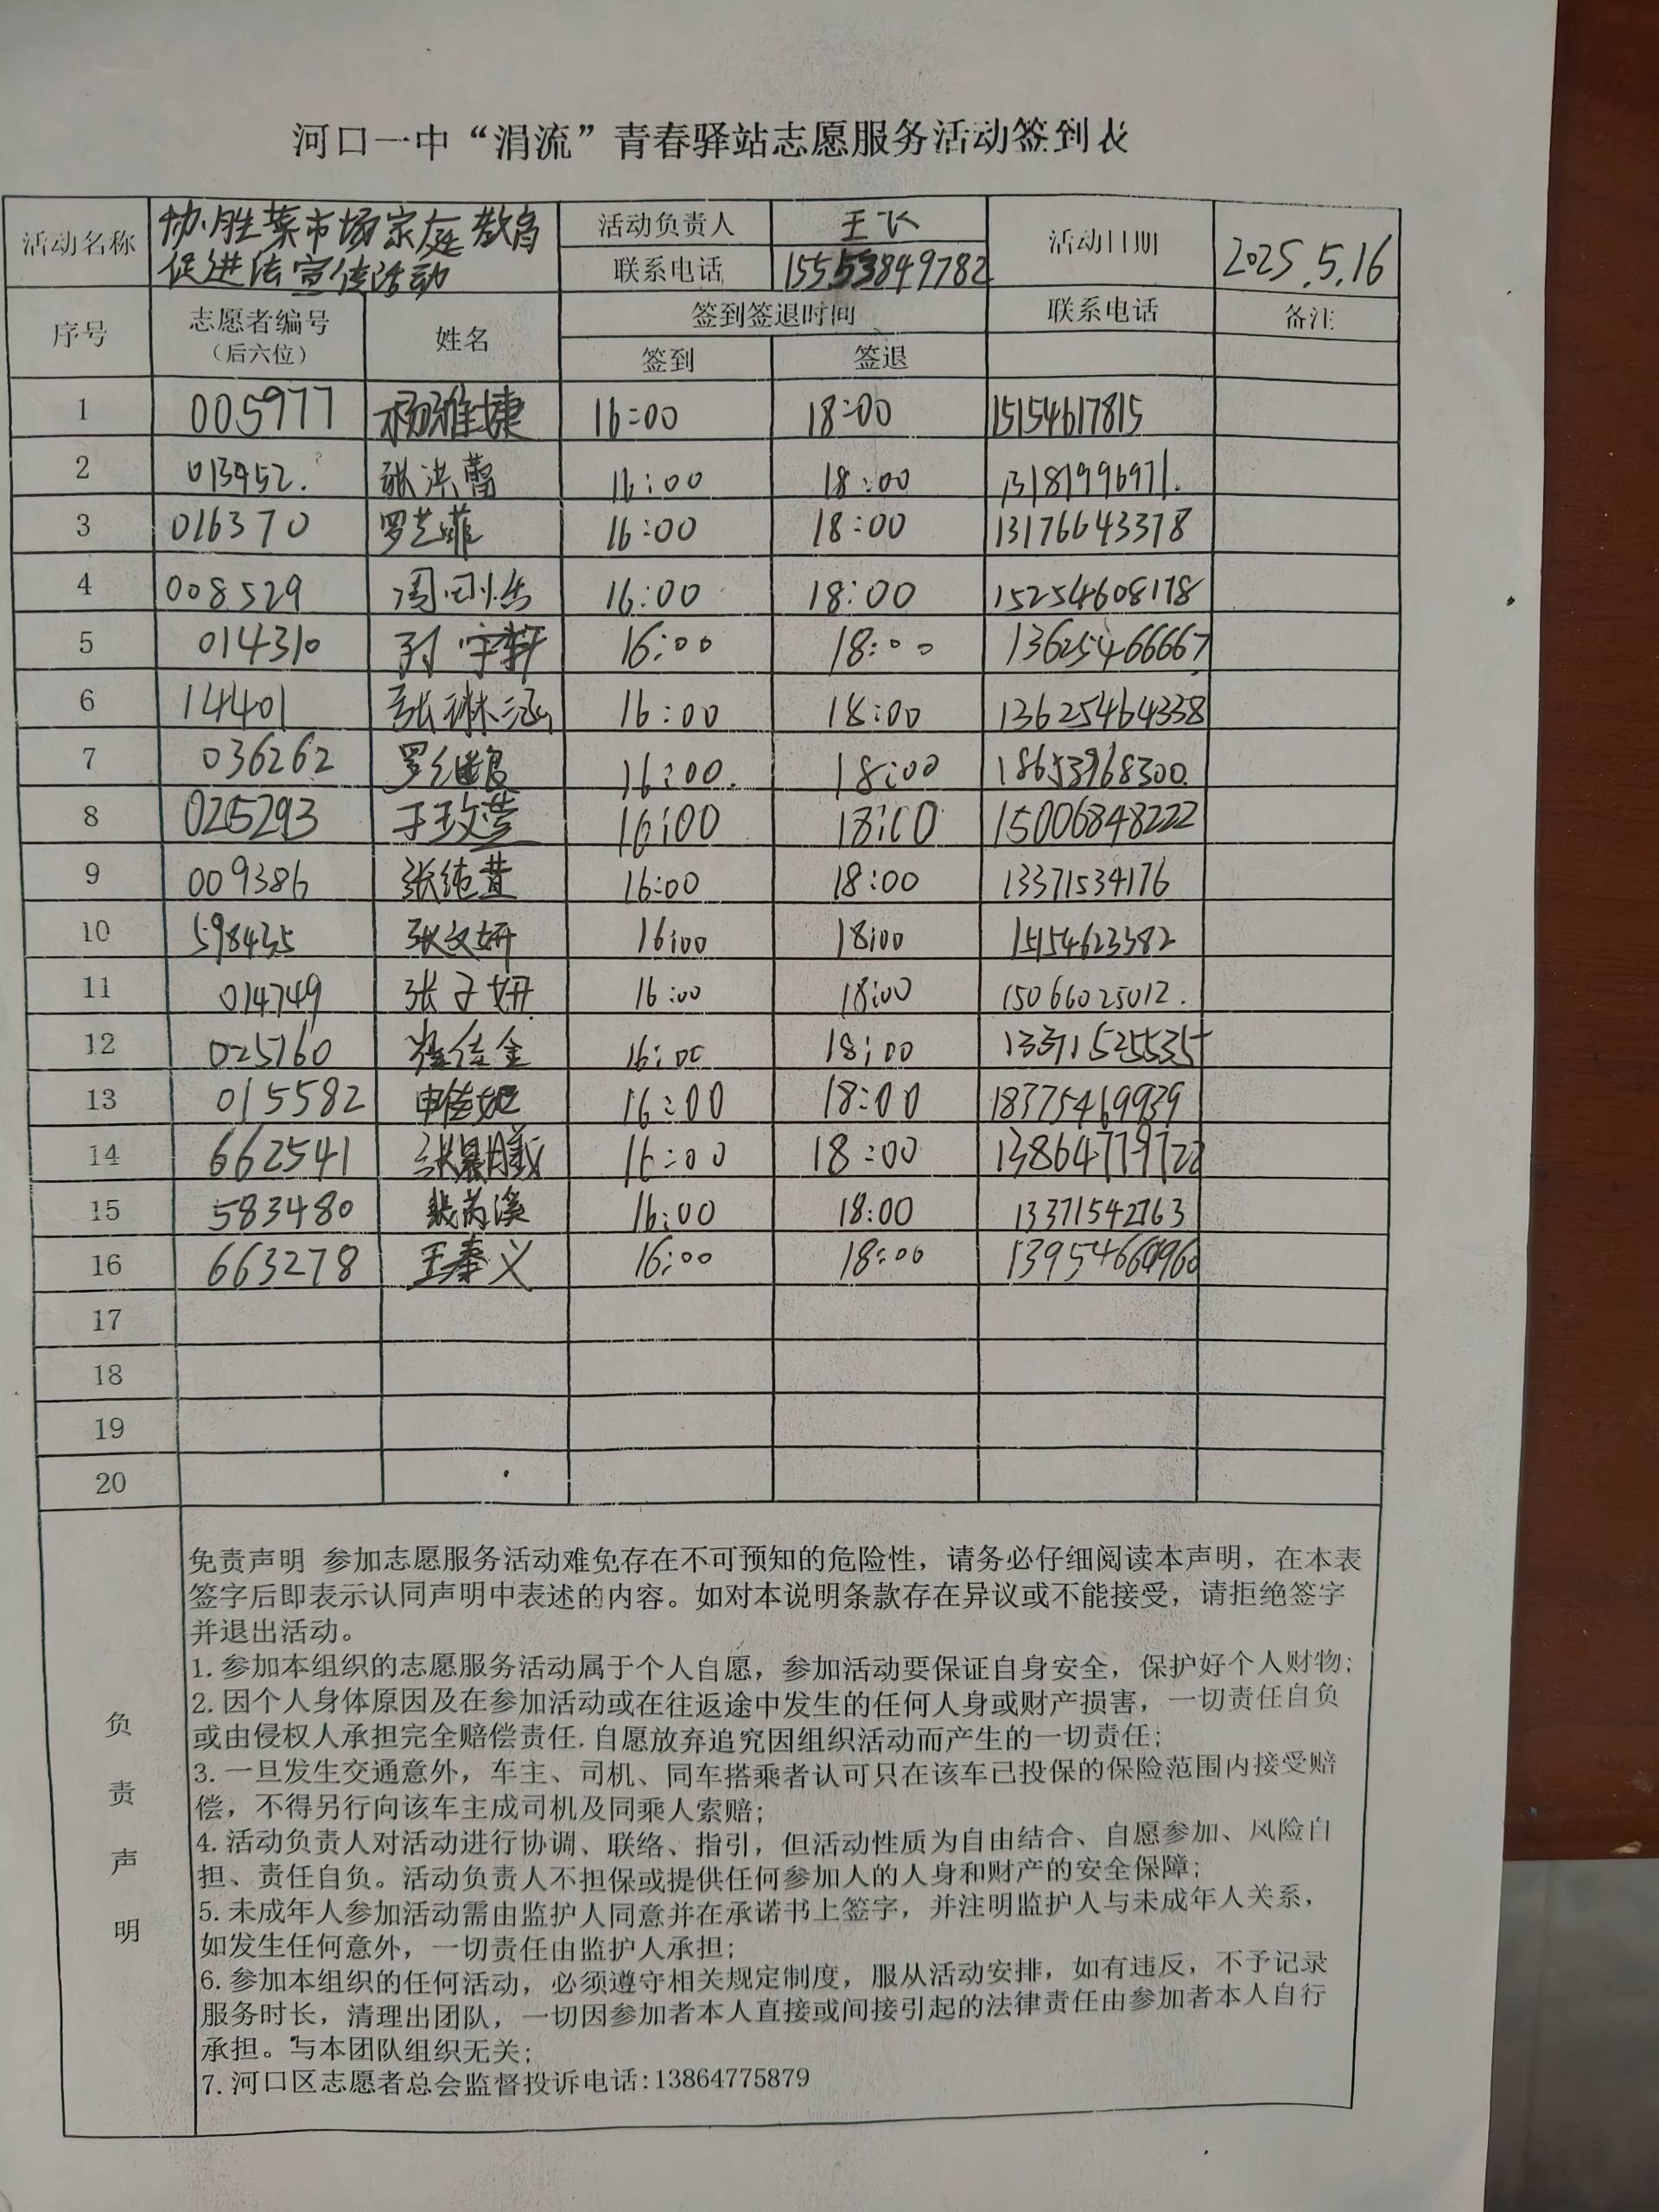 河口一中“涓流”青春驿站志愿服务活动签到表
活动名称 协胜菜市场家庭教育 活动负责人 王飞 活动日期 2025.5.16
促进法宣传活动 联系电话 15553849782
序号 志愿者编号 姓名 签到签退时间 联系电话 备注
（后六位） 签到 签退
1 005977 杨雅捷 16:00 18:00 15154617815
2 013952. 张洪蕾 16:00 18:00 13181996971.
3 016370 罗艺菲 16:00 18:00 13176643378
4 008529 周 16:00 18:00 15254608178
5 014310 孙宇轩 16:00 18:00 13625466667
6 14401 张琳涵 16:00 18:00 13625464338
7 036262 罗 16:00. 18:00 18653968300.
8 025293 于玫萱 16:00 18:00 15006848222
9 009386 张纯 16:00 18:00 13371534176
10 598435 张文妍 16:00 18:00
11 014749 张子妍 16:00 18:00 15066025012.
12 025160 16:00 18:00 13371525535
13 015582 16:00 18:00 18375469939
14 662541 张 16:00 18:00
15 583480 裴芮溪 16:00 18:00 13371542763
16 663278 王奉义 16:00 18:00 13954660960
17
18
19
20
负责声明
免责声明 参加志愿服务活动难免存在不可预知的危险性，请务必仔细阅读本声明，在本表
签字后即表示认同声明中表述的内容。如对本说明条款存在异议或不能接受，请拒绝签字
并退出活动。
1.参加本组织的志愿服务活动属于个人自愿，参加活动要保证自身安全，保护好个人财物;
2.因个人身体原因及在参加活动或在往返途中发生的任何人身或财产损害，一切责任自负
或由侵权人承担完全赔偿责任.自愿放弃追究因组织活动而产生的一切责任;
3.一旦发生交通意外，车主、司机、同车搭乘者认可只在该车已投保的保险范围内接受赔
偿，不得另行向该车主成司机及同乘人索赔;
4.活动负责人对活动进行协调、联络、指引，但活动性质为自由结合、自愿参加、风险自
担、责任自负。活动负责人不担保或提供任何参加人的人身和财产的安全保障;
5.未成年人参加活动需由监护人同意并在承诺书上签字，并注明监护人与未成年人关系，
如发生任何意外，一切责任由监护人承担;
6.参加本组织的任何活动，必须遵守相关规定制度，服从活动安排，如有违反，不予记录
服务时长，清理出团队，一切因参加者本人直接或间接引起的法律责任由参加者本人自行
承担。与本团队组织无关;
7.河口区志愿者总会监督投诉电话:13864775879